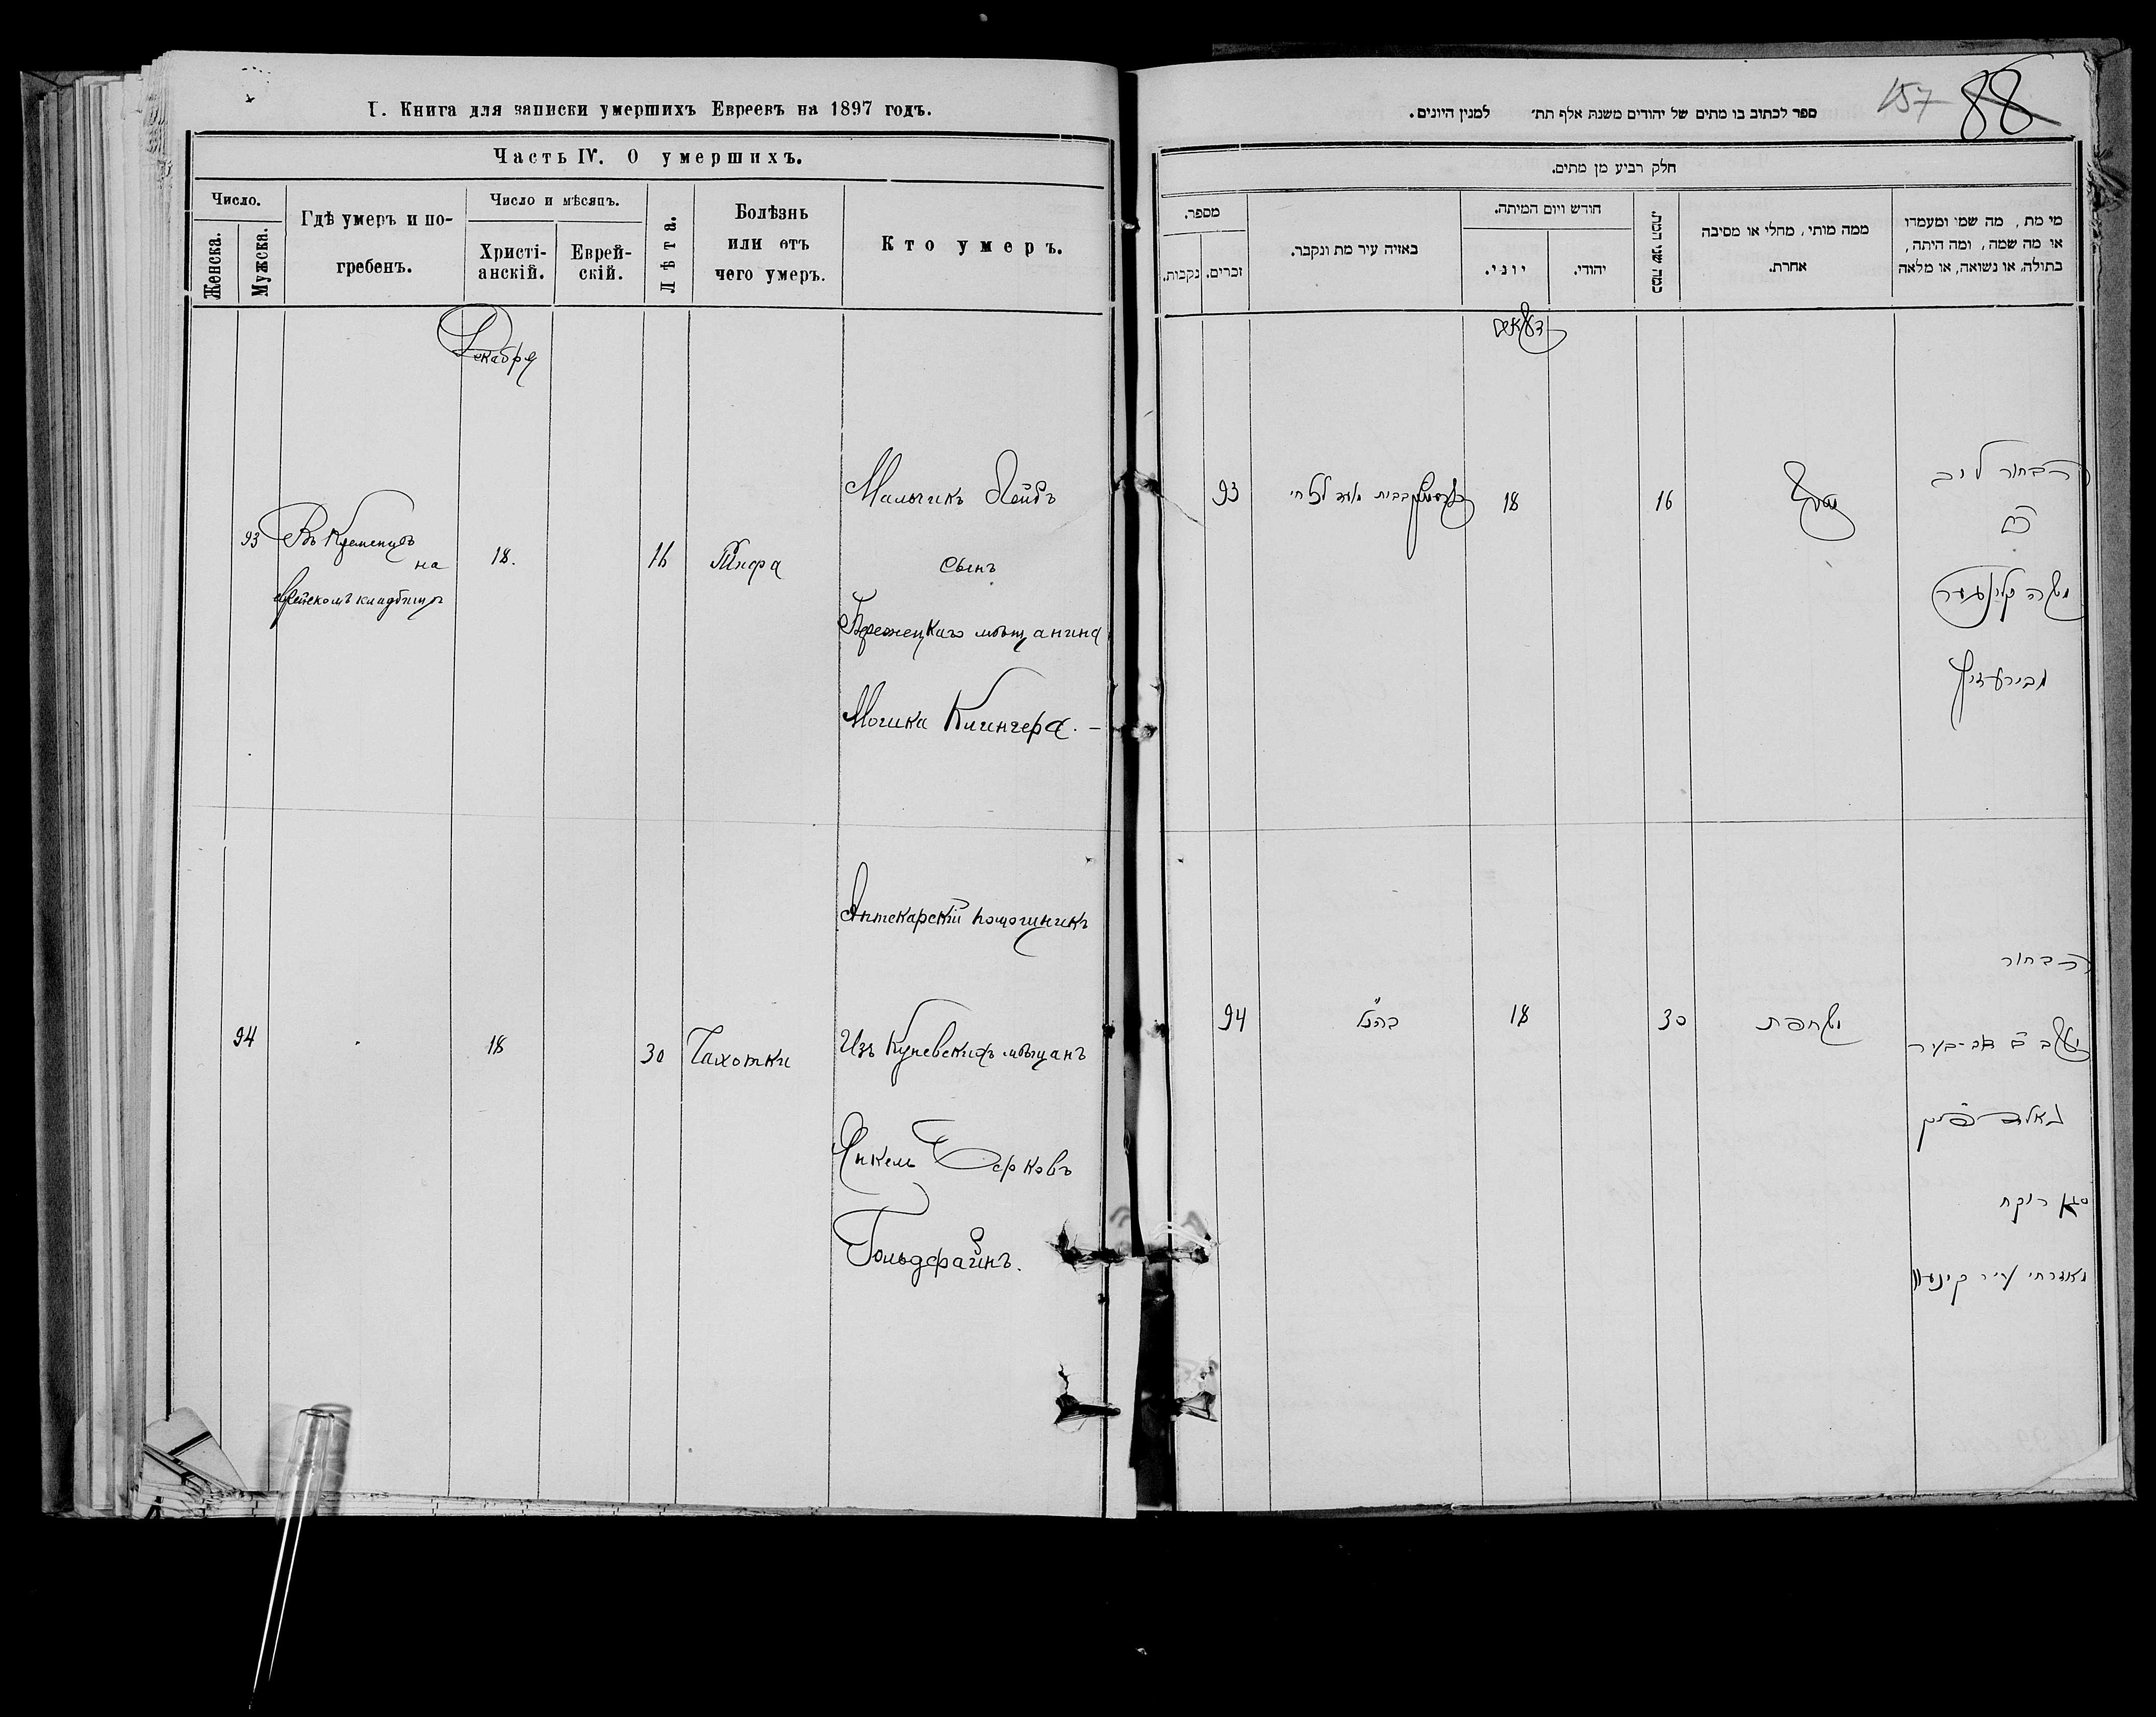 I. Книга для записки умершихъ Евреевъ на 1897 годъ.
Часть IV. О умершихъ.
Число.
Женска.
Мужска.
Гдѣ умеръ и по-
гребенъ.
Число и мѣсяцъ.
Христі-
анскій.
Еврей-
скій.
Лѣта.
Болѣзнь
или отъ
чего умеръ.
Кто умеръ.
Декабря
93
Въ Кременцѣ
на
еврейскомъ кладбищѣ
18.
16
Тифа
Мальчикъ Лейбъ
сынъ
Бережецкаго мѣщанина
Мошка Клингера. –
94
18
30
Чахотки
Аптекарскій помощникъ
Изъ Куневскихъ мѣщанъ
Янкель Берковъ
Гольдфайнъ.
157
88
ספר לכתוב בו מתים של יהודים משנת אלף תת׳ למנין היונים.
חלק רביע מן מתים.
מספר.
נקבות.
זכרים.
באיזה עיר מת ונקבר.
חודש ויום המיתה.
יוני.
יהודי.
כמה שני המת.
ממה מותי, מחלי או מסיבה
אחרת.
מי מת, מה שמו ומעמדו
או מה שמה, ומה היתה,
בתולה, או נשואה, או מלאה
דעקאב
93
בבית
18
16
הבחור ליב
משה קלינגער
94
כהנ"ל
18
30
שחפת
הבחור
יעקב
סגן רוקח
מאזרחי עיר קינעוו